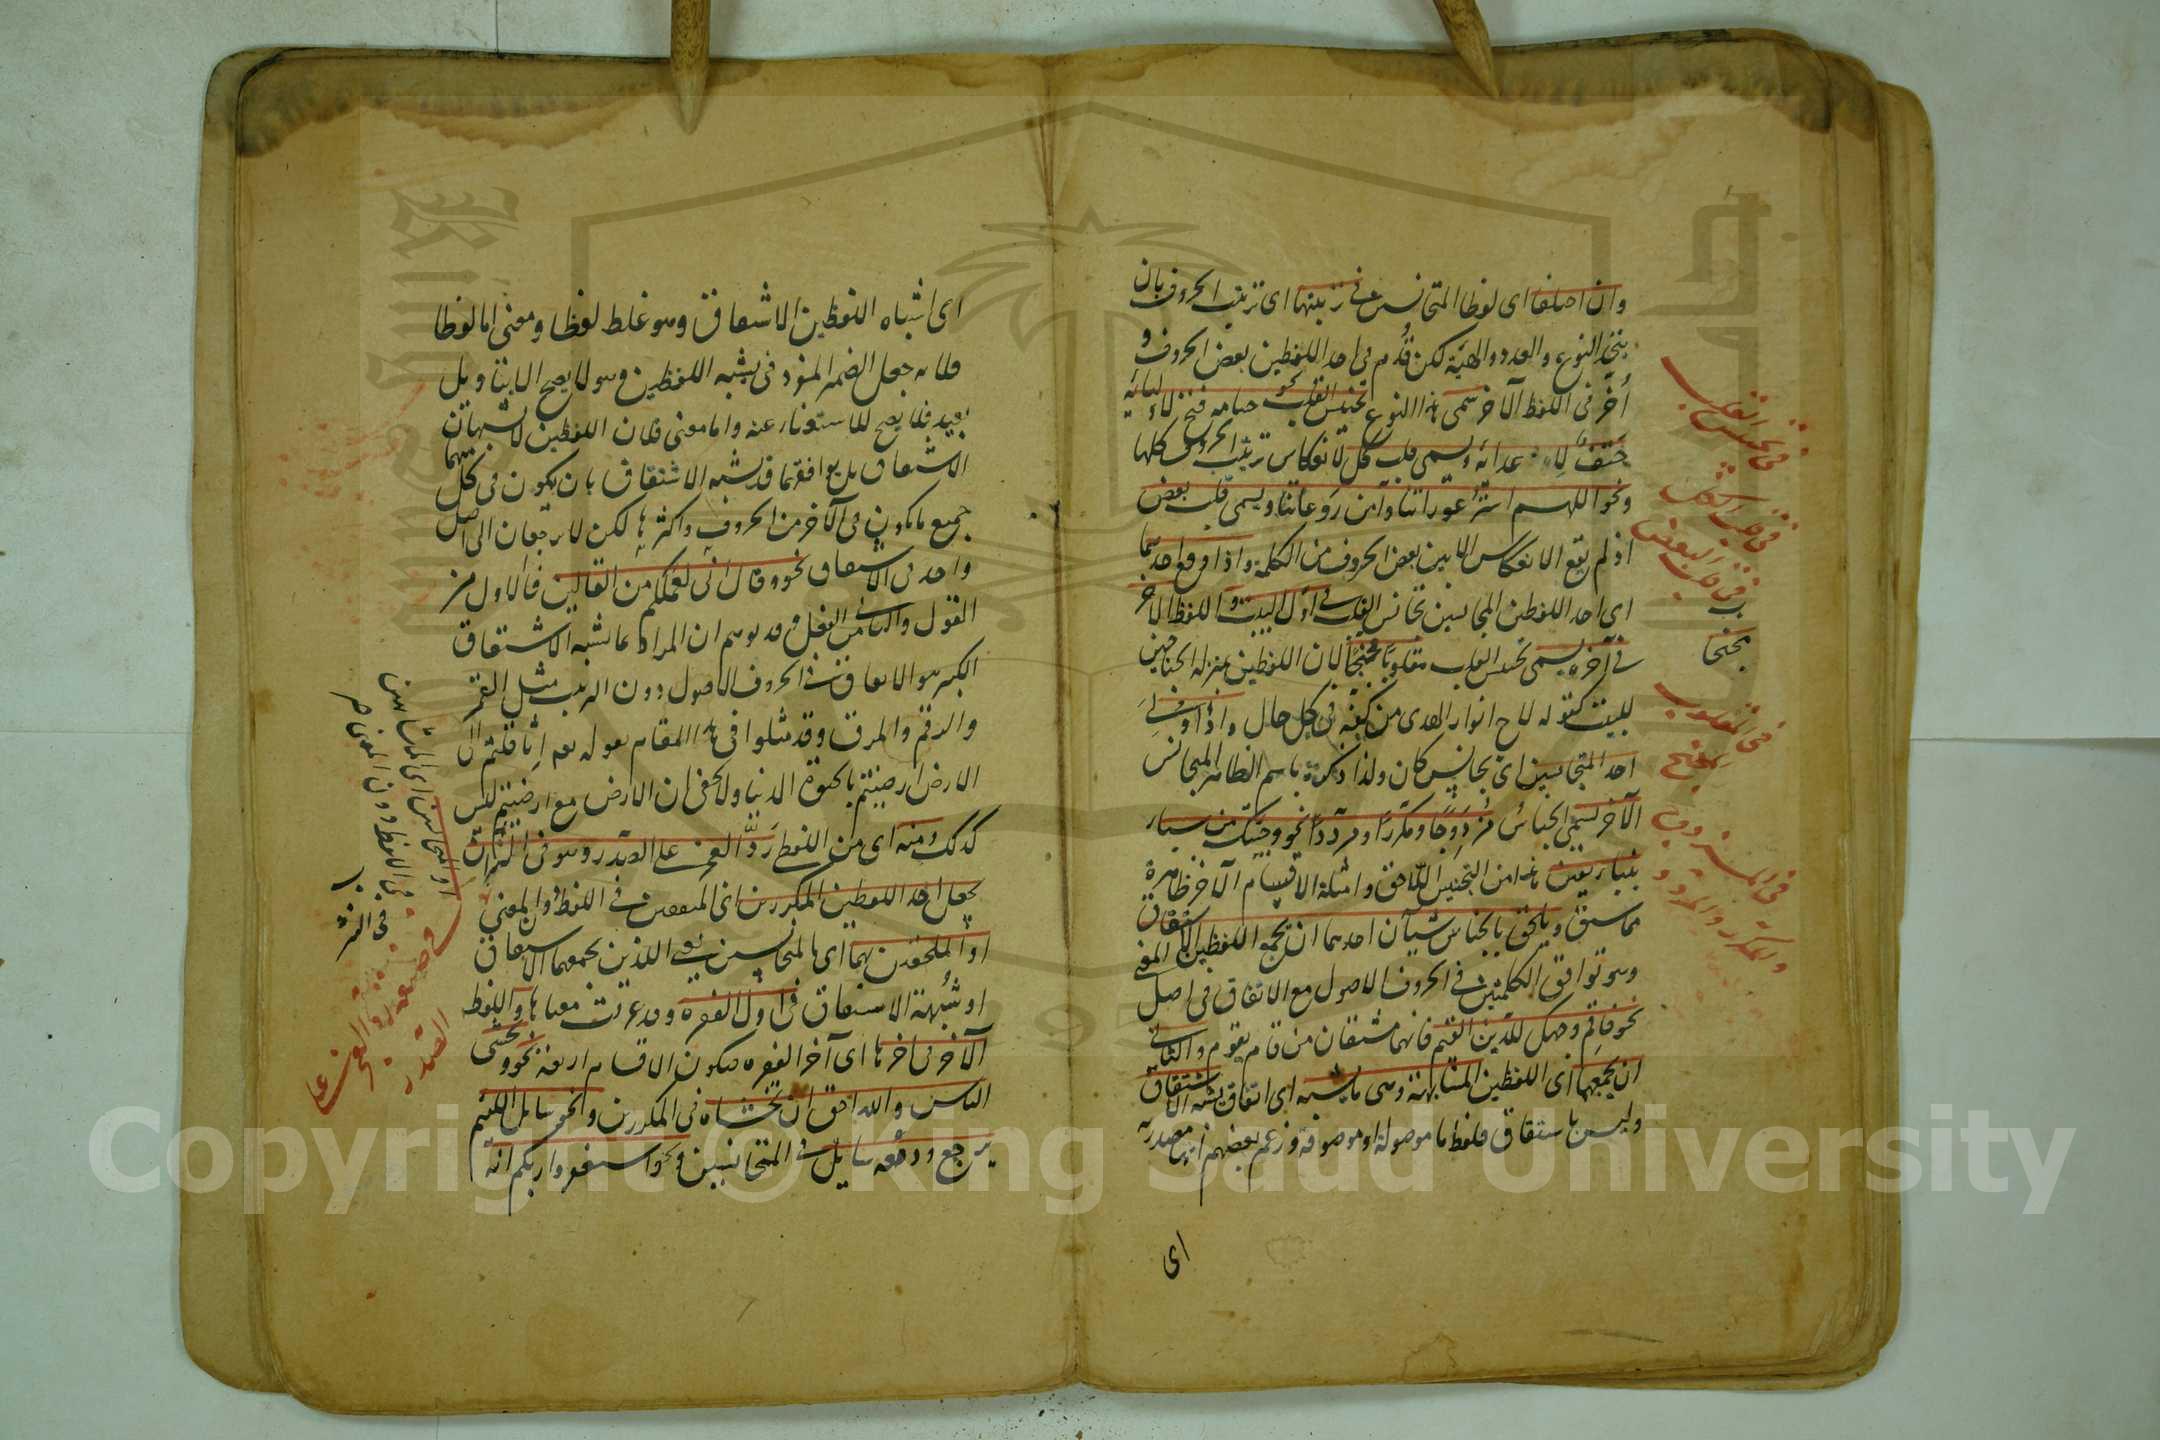 وان اختلفا اى لفظا المتجانسين فى ترتيبها اى ترتيب الحروف بان
يتحد النوع والعدد والهيئة لكن قُدّم فى احد اللفظين بعض الحروف و
أُخّر فى اللفظ الآخر سمى هذا النوع تجنيس القلب نحو حسامه فتح لاوليائه
حَتفٌ لاعدائه ويسمى قلب كل لانعكاس ترتيب الحروف كلها
ونحو اللهم استر عوراتنا وآمن روعاتنا ويسمى قلب بعض
اذ لم يقع الانعكاس الا بين بعض الحروف من الكلمة واذا وقع احدهما
اى احد اللفظين المتجانسين تجانس القلب فى اول البيت و اللفظ الآخر
فى آخره يسمى تجنيس القلب مقلوبا مجنحا لان اللفظين بمنزلة الجناحين
للبيت كقوله لاح انوار الهدى من كفه فى كل حال واذا ولى
احد المتجانسين اى تجانس كان ولذا ذكره باسم الظاهر المتجانس
الآخر يسمى الجناس مزدوجا ومكررا ومرددا نحو وجئتك من سبأ
بنبأ يقين هذا من التجنيس اللاحق وامثلة الاقسام الآخر ظاهرة
مما سبق ويلحق بالجناس شيآن احدهما ان يجمع اللفظين الاشتقاق
وهو توافق الكلمتين فى الحروف الاصول مع الاتفاق فى اصل المعنى
نحو فاقم وجهك للدين القيم فانهما مشتقان من قام يقوم والثانى
ان يجمعهما اى اللفظين المشابهة وهى ما يشبه اى اتفاق يشبه الاشتقاق
وليس باشتقاق فلفظ ما موصولة او موصوفة وزعم بعضهم انها مصدرية
اى
فى تجنيس القلب
فى قلب الكل
فى قلب البعض
مجنحا
فى المقلوب
المجنح
فى المزدوج
والمكرر والمردد
اى اشباه اللفظين الاشتقاق وهو غلط لفظا ومعنى اما لفظا
فلانه جعل الضمير المفرد فى يشبه اللفظين وهو لا يصح الا بتاويل
بعيد فلا يصح للاستغناء عنه واما معنى فلان اللفظين لا يشبهان
الاشتقاق بل توافقهما قد يشبه الاشتقاق بان يكون فى كل منهما
جميع ما يكون فى الآخر من الحروف واكثرها لكن لا يرجعان الى اصل
واحد فى الاشتقاق نحو وقال انى لعملكم من القالين فالاول من
القول والثانى من القلى وقد يوهم ان المراد بما يشبه الاشتقاق
الكبير هو الاتفاق فى الحروف الاصول دون الترتيب مثل القمر
والرقم والمرق وقد مثلوا فى هذا المقام بقوله تعم اثاقلتم الى
الارض ارضيتم بالحيوة الدنيا ولا يخفى ان الارض مع ارضيتم ليس
كذلك ومنه اى من اللفظى رد العجز على الصدر وهو فى النثر ان
يجعل احد اللفظين المكررين اى المتفقين فى اللفظ والمعنى
او الملحقين بهما اى بالمتجانسين يعنى اللذين يجمعهما الاشتقاق
او شبهة الاشتقاق فى اول الفقرة وقد عرفت معناها واللفظ
الآخر فى آخرها اى آخر الفقرة فيكون الاقسام اربعة نحو وتخشى
الناس والله احق ان تخشاه فى المكررين ونحو سايل اللئيم
يرجع ودمعه سايل فى المتجانسين ونحو استغفروا ربكم انه
او المتجانسين اى المتشابهين
فى اللفظ دون المعنى صح
فى النثر
رد العجز على
الصدر
Copyright © King Saud University